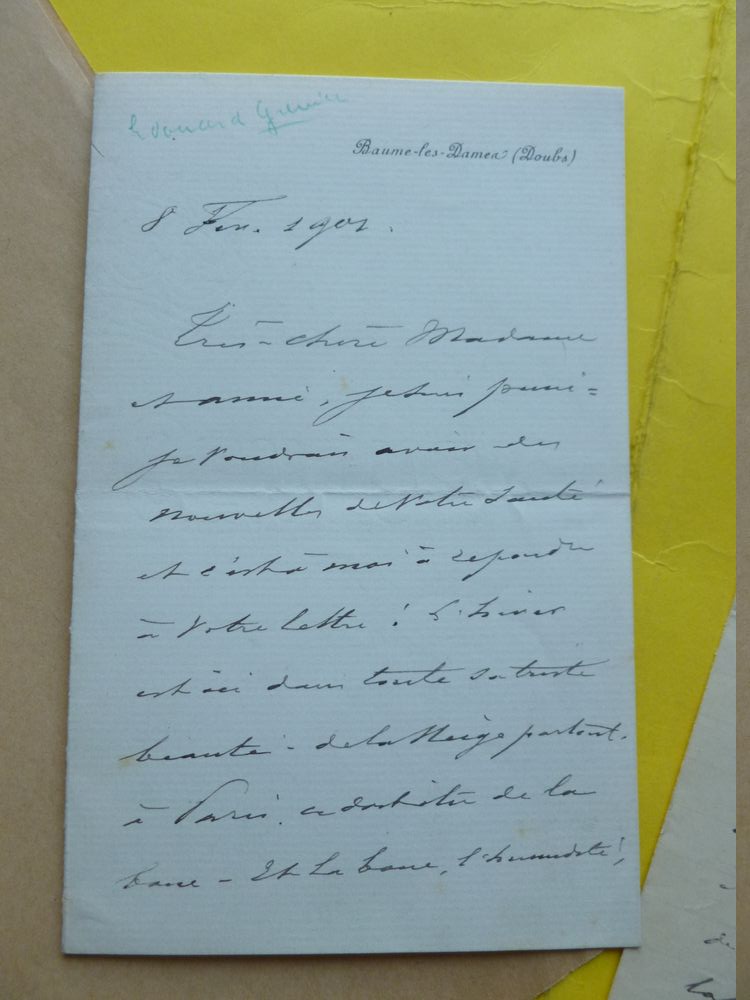 Edouard Grenier
Baume-les-Dames (Doubs)
8 Fev. 1901.
Très-chère Madame
et amie, je suis puni =
je voudrais avoir des
nouvelles de Votre Santé
et c'est à moi à repondre
à Votre lettre ! L'hiver
est ici dans toute sa triste
beauté - de la Neige partout.
à Paris. ce doit être de la
boue - Et la boue, l'humidité,